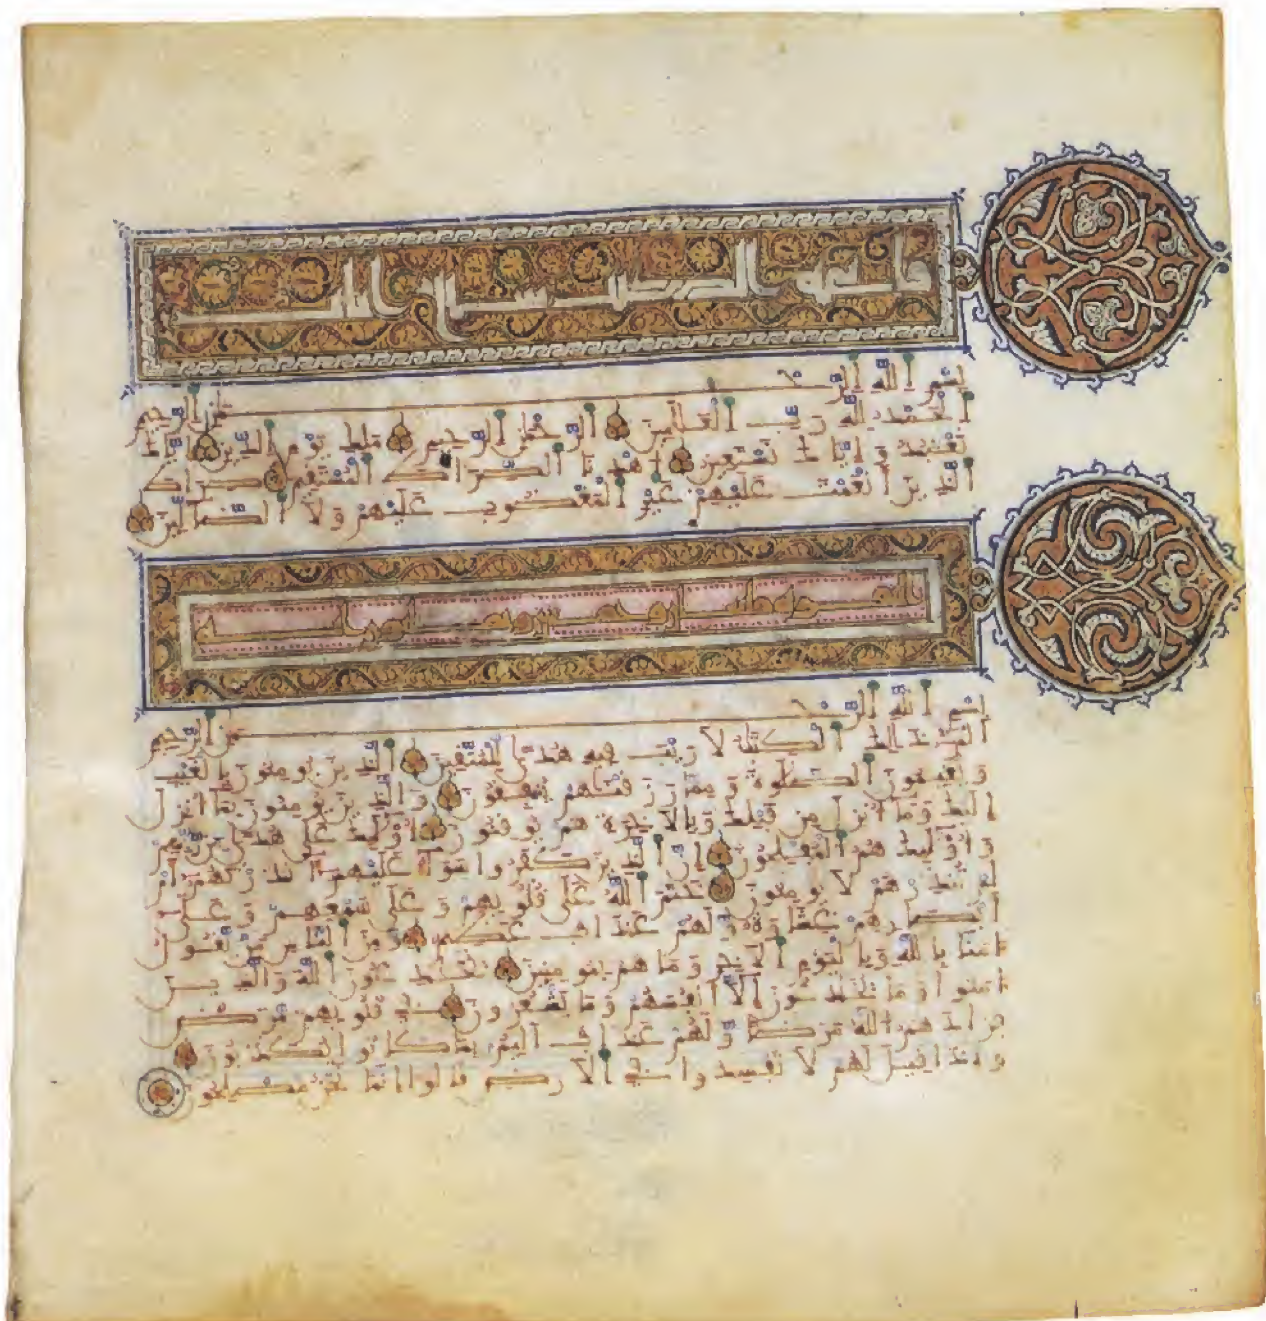 بسم الله الرحمن الرحيم
الحمد لله رب العلمين الرحمن الرحيم ملك يوم الدين اياك
نعبد واياك نستعين اهدنا الصراط المستقيم صراط
الذين أنعمت عليهم غير المغضوب عليهم ولا الضالين
بسم الله الرحمن الرحيم
الم ذلك الكتب لا ريب فيه هدى للمتقين الذين يومنون بالغيب
ويقيمون الصلوة ومما رزقنهم ينفقون والذين يومنون بما انزل
اليك وما انزل من قبلك وبالاخرة هم يوقنون اوليك على هدى من ربهم
واوليك هم المفلحون ان الذين كفروا سوا عليهم انذرتهم ام
لم تنذرهم لا يومنون ختم الله على قلوبهم وعلى سمعهم وعلى
ابصرهم غشوة ولهم عذاب عظيم ومن الناس من يقول
امنا بالله وباليوم الاخر وما هم بمومنين يخدعون الله والذين
امنوا وما يخدعون الا انفسهم وما يشعرون في قلوبهم مرض
فزادهم الله مرضا ولهم عذاب اليم بما كانوا يكذبون
واذا قيل لهم لا تفسدوا في الارض قالوا انما نحن مصلحون